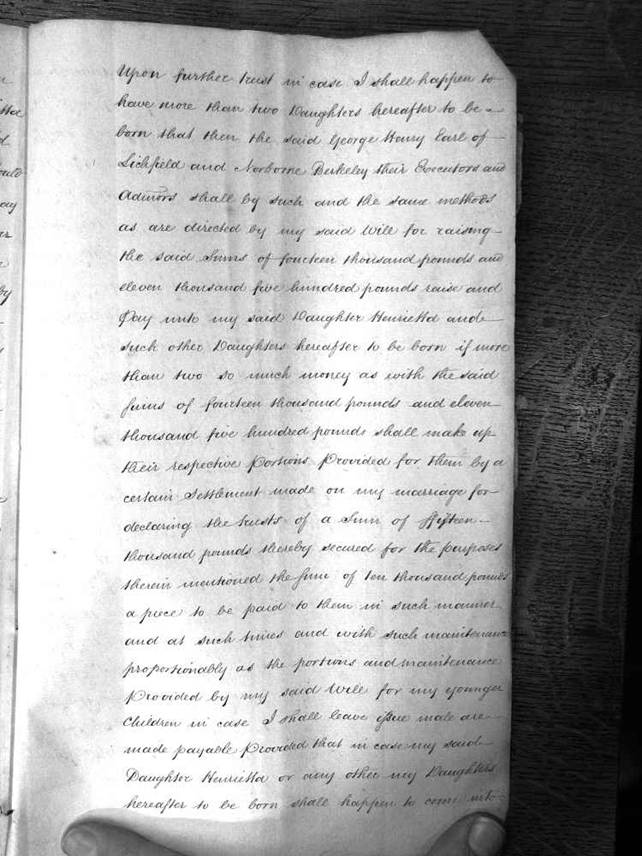 Upon further trust in case I shall happen to
have more than two Daughters hereafter to be
born that then the said George Henry Earl of
Lichfield and Norborne Berkeley their Executors and
Admors shall by such and the same methods
as are directed by my said Will for raising
the said Sums of fourteen thousand pounds and
eleven thousand five hundred pounds raise and
Pay unto my said Daughter Henrietta and
such other Daughters hereafter to be born if more
than two so much money as with the said
Sums of fourteen thousand pounds and eleven
thousand five hundred pounds shall make up
their respective Portions Provided for them by a
certain Settlement made on my marriage for
declaring the trusts of a Sum of fifteen
thousand pounds thereby secured for the purposes
therein mentioned the Sum of ten thousand pounds
a piece to be paid to them in such manner
and at such times and with such maintenance
proportionably as the portions and maintenance
Provided by my said Will for my younger
Children in case I shall leave issue male are
made payable Provided that in case my said
Daughter Henrietta or any other my Daughters
hereafter to be born shall happen to come into